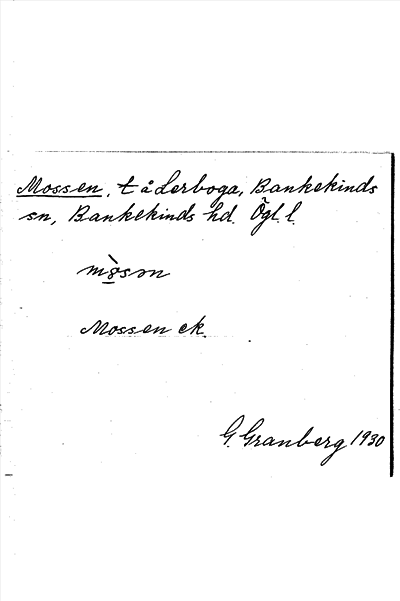 Mossen, t å Lerboga, Bankekinds
sn, Bankekinds hd. Ögl. l.
Mossen ek.
G. Granberg 1930